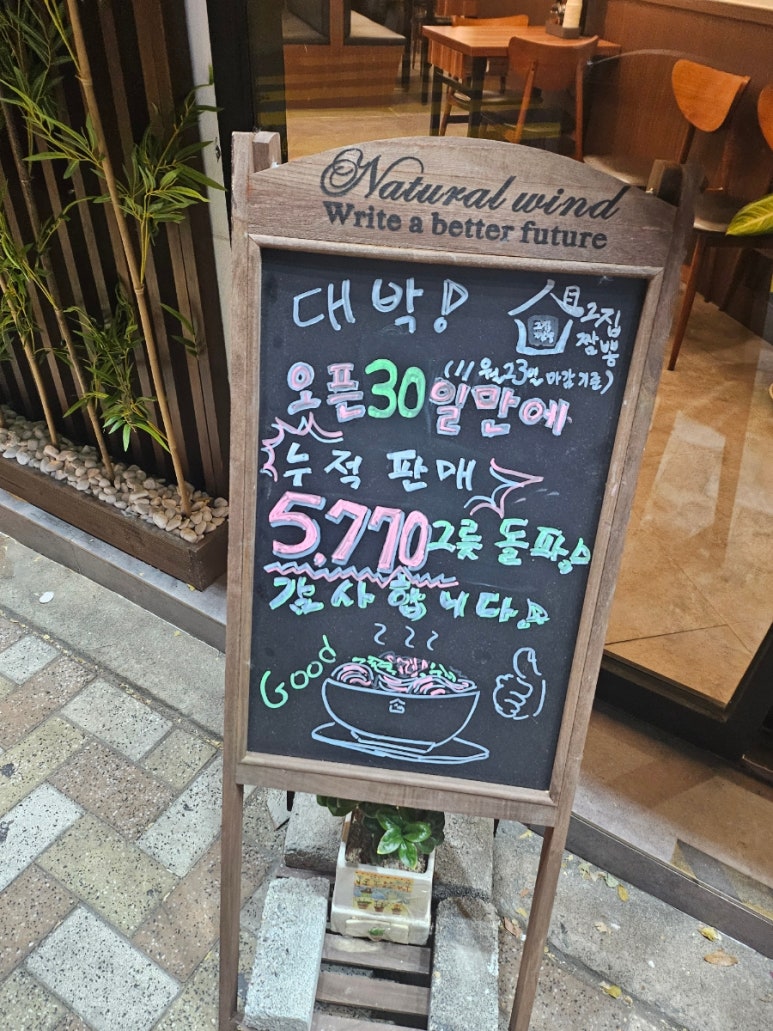 Natural wind
Write a better future
대박!
그집
짬뽕
오픈30일만에
(11월23일 마감기준)
누적 판매
5,770그릇 돌파!
감사합니다!
Good